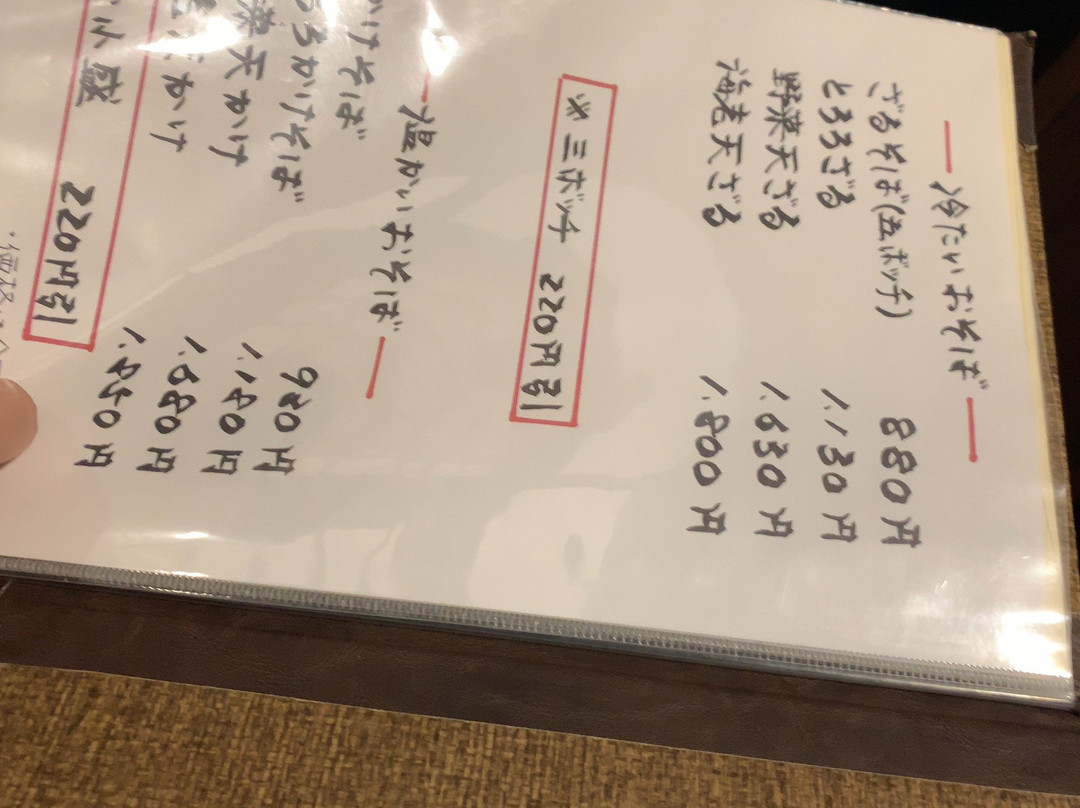 冷たいおそば
ざるそば(五ボッチ) 880円
とろろざる 1.130円
野菜天ざる 1.630円
海老天ざる 1.800円
※三ボッチ 220円引
温かいおそば
かけそば 930円
ろろかけそば 1.180円
菜天かけ 1.680円
天かけ 1.850円
小盛 220円引